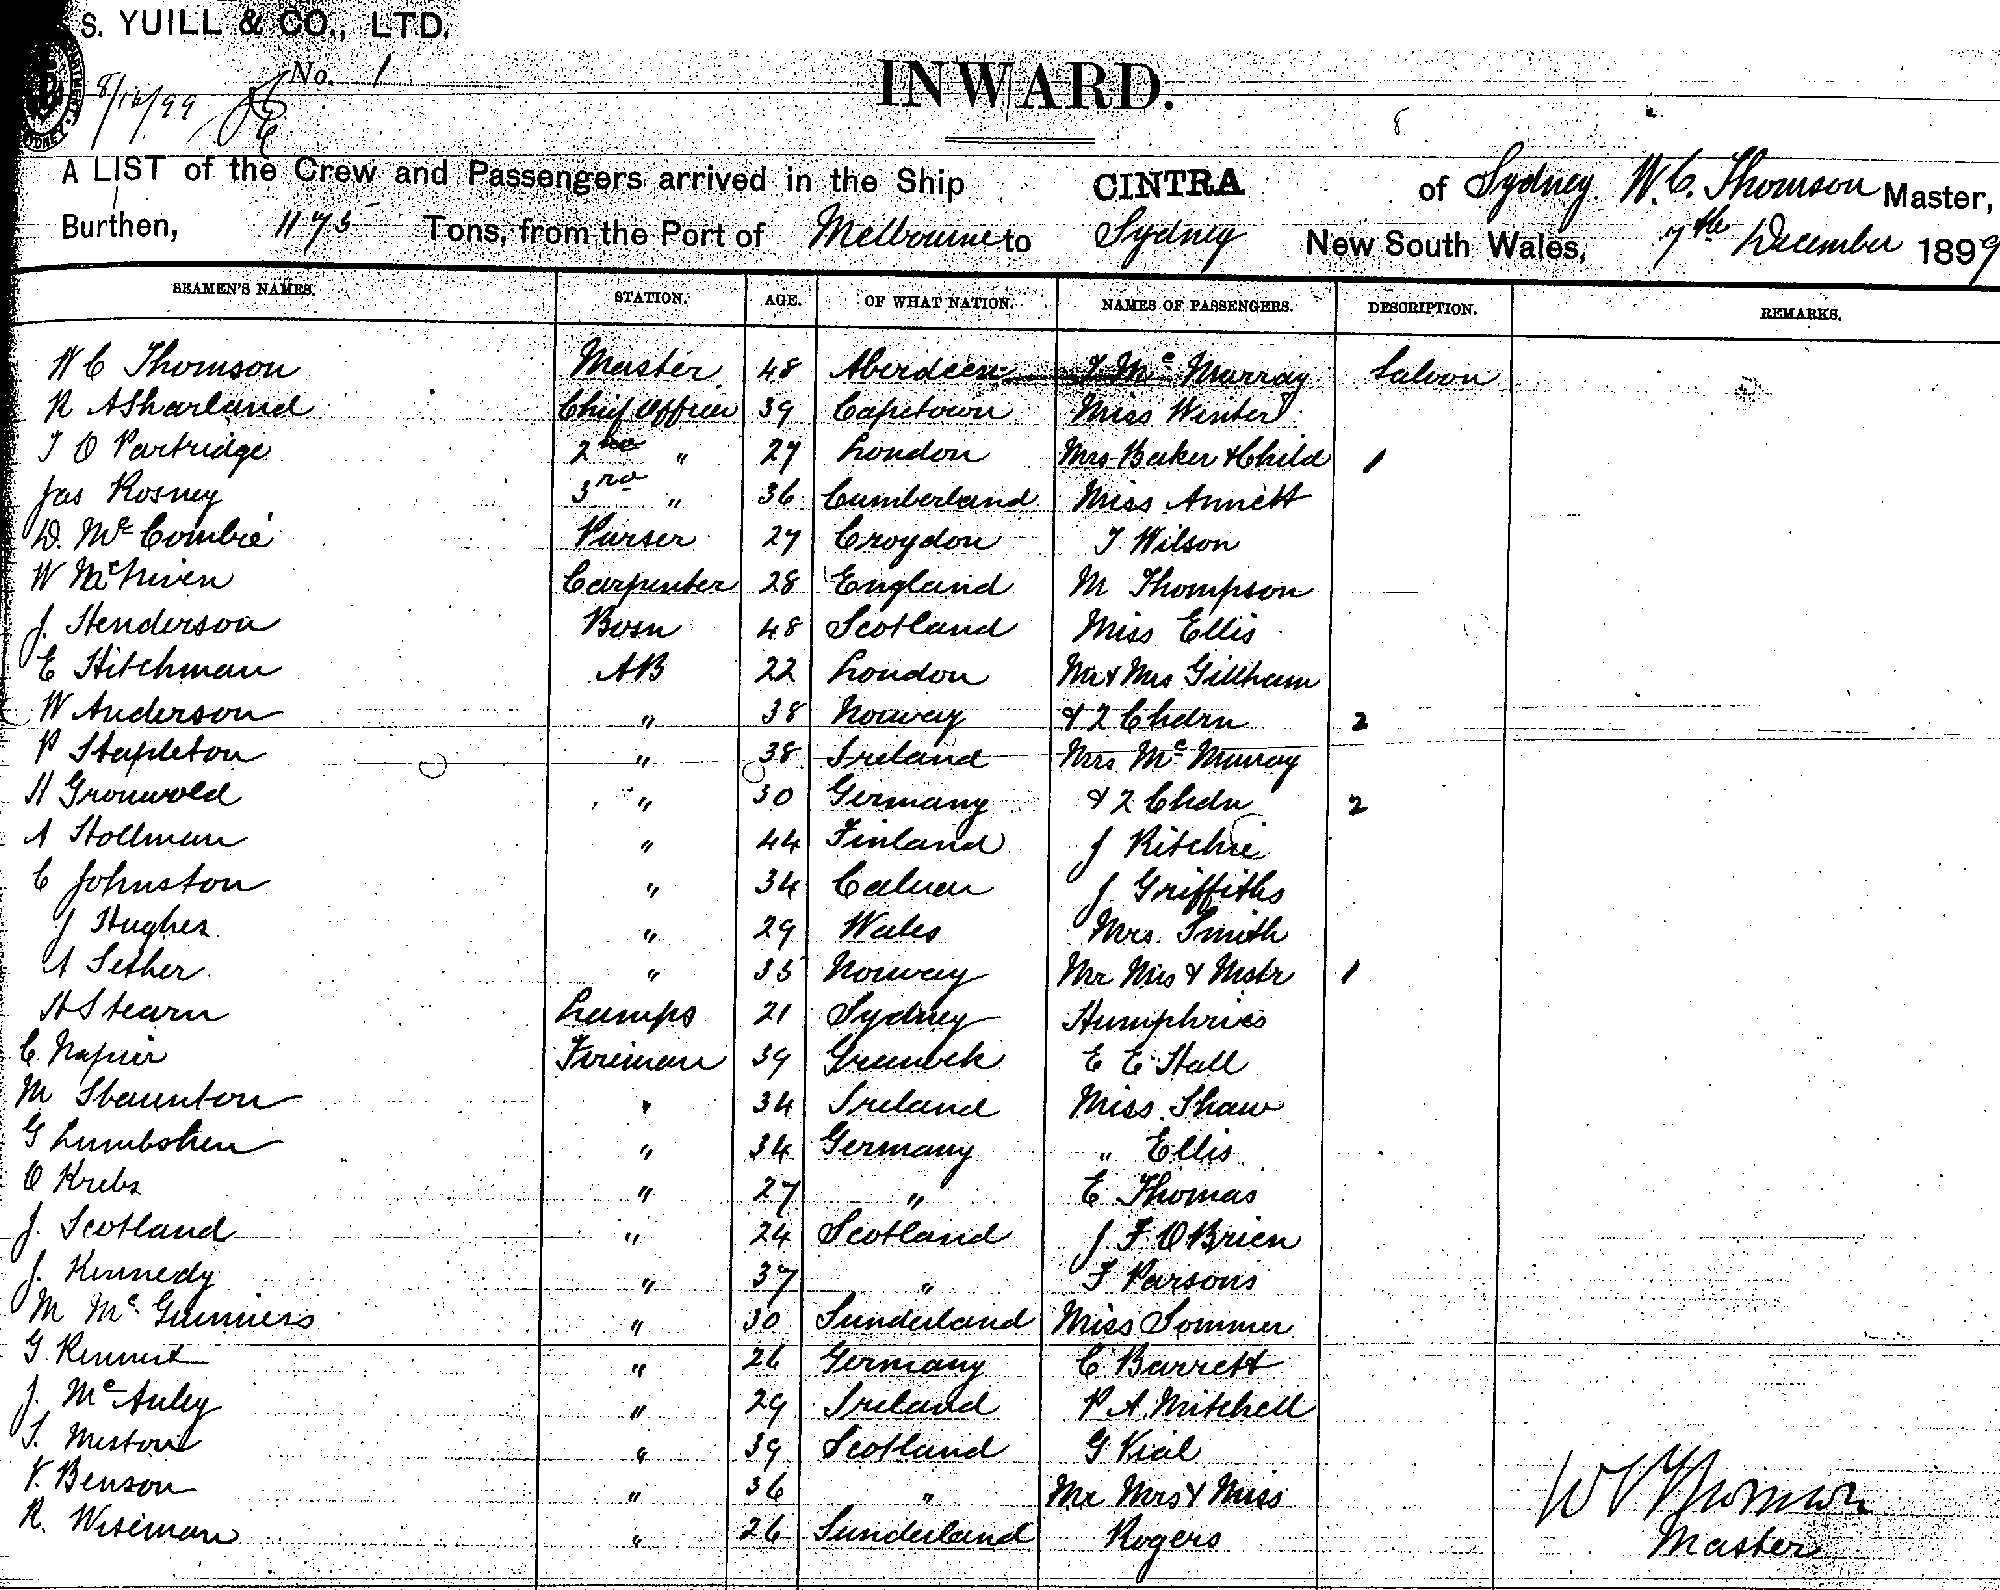 S. YUILL & CO., LTD.
No. 1
8/12/99
INWARD.
A LIST of the Crew and Passengers arrived in the Ship CINTRA of Sydney. W. C. Thomson Master,
Burthen, 1175 Tons, from the Port of Melbourne to Sydney New South Wales, 7th December 1899
SEAMEN'S NAMES. STATION. AGE. OF WHAT NATION. NAMES OF PASSENGERS. DESCRIPTION. REMARKS.
W C Thomson Master 48 Aberdeen J Mc Murray Saloon
R A Sharland Chief Officer 39 Capetown Miss Winter
T O Partridge 2nd " 27 London Mrs Baker & Child 1
Jas Rosney 3rd " 36 Cumberland Miss Annett
D. Mc Combie Purser 27 Croydon T Wilson
W McNiven Carpenter 28 England M Thompson
J. Henderson Bosn 48 Scotland Miss Ellis
E Hitchman AB 22 London Mr & Mrs Gillham
W Anderson " 38 Norway & 2 Chdrn 2
P Stapleton " 38 Ireland Mrs Mc Murray
H Gronwold " 30 Germany & 2 Chdn 2
A Hollman " 44 Finland J Ritchie
C Johnston " 34 J Griffiths
J Hughes " 29 Wales Mrs. Smith
A Sether " 35 Norway Mr Mrs & Mstr 1
H Stearn Lamps 21 Sydney Humphries
C. Napier Fireman 39 Greenock E E Hall
M Staunton " 34 Ireland Miss Shaw
G " 34 Germany " Ellis
O Krebs " 27 " E Thomas
J. Scotland " 24 Scotland J F OBrien
J. Kennedy " 37 " F Parsons
M Mc Guiniess " 30 Sunderland Miss Sommer
G " 26 Germany C Barrett
J. McAuley " 29 Ireland P A Mitchell
S. Meston " 39 Scotland G Kial
V. Benson " 36 " Mr Mrs & Miss
R. Wiseman " 26 Sunderland Rogers
W C Thomson
Master